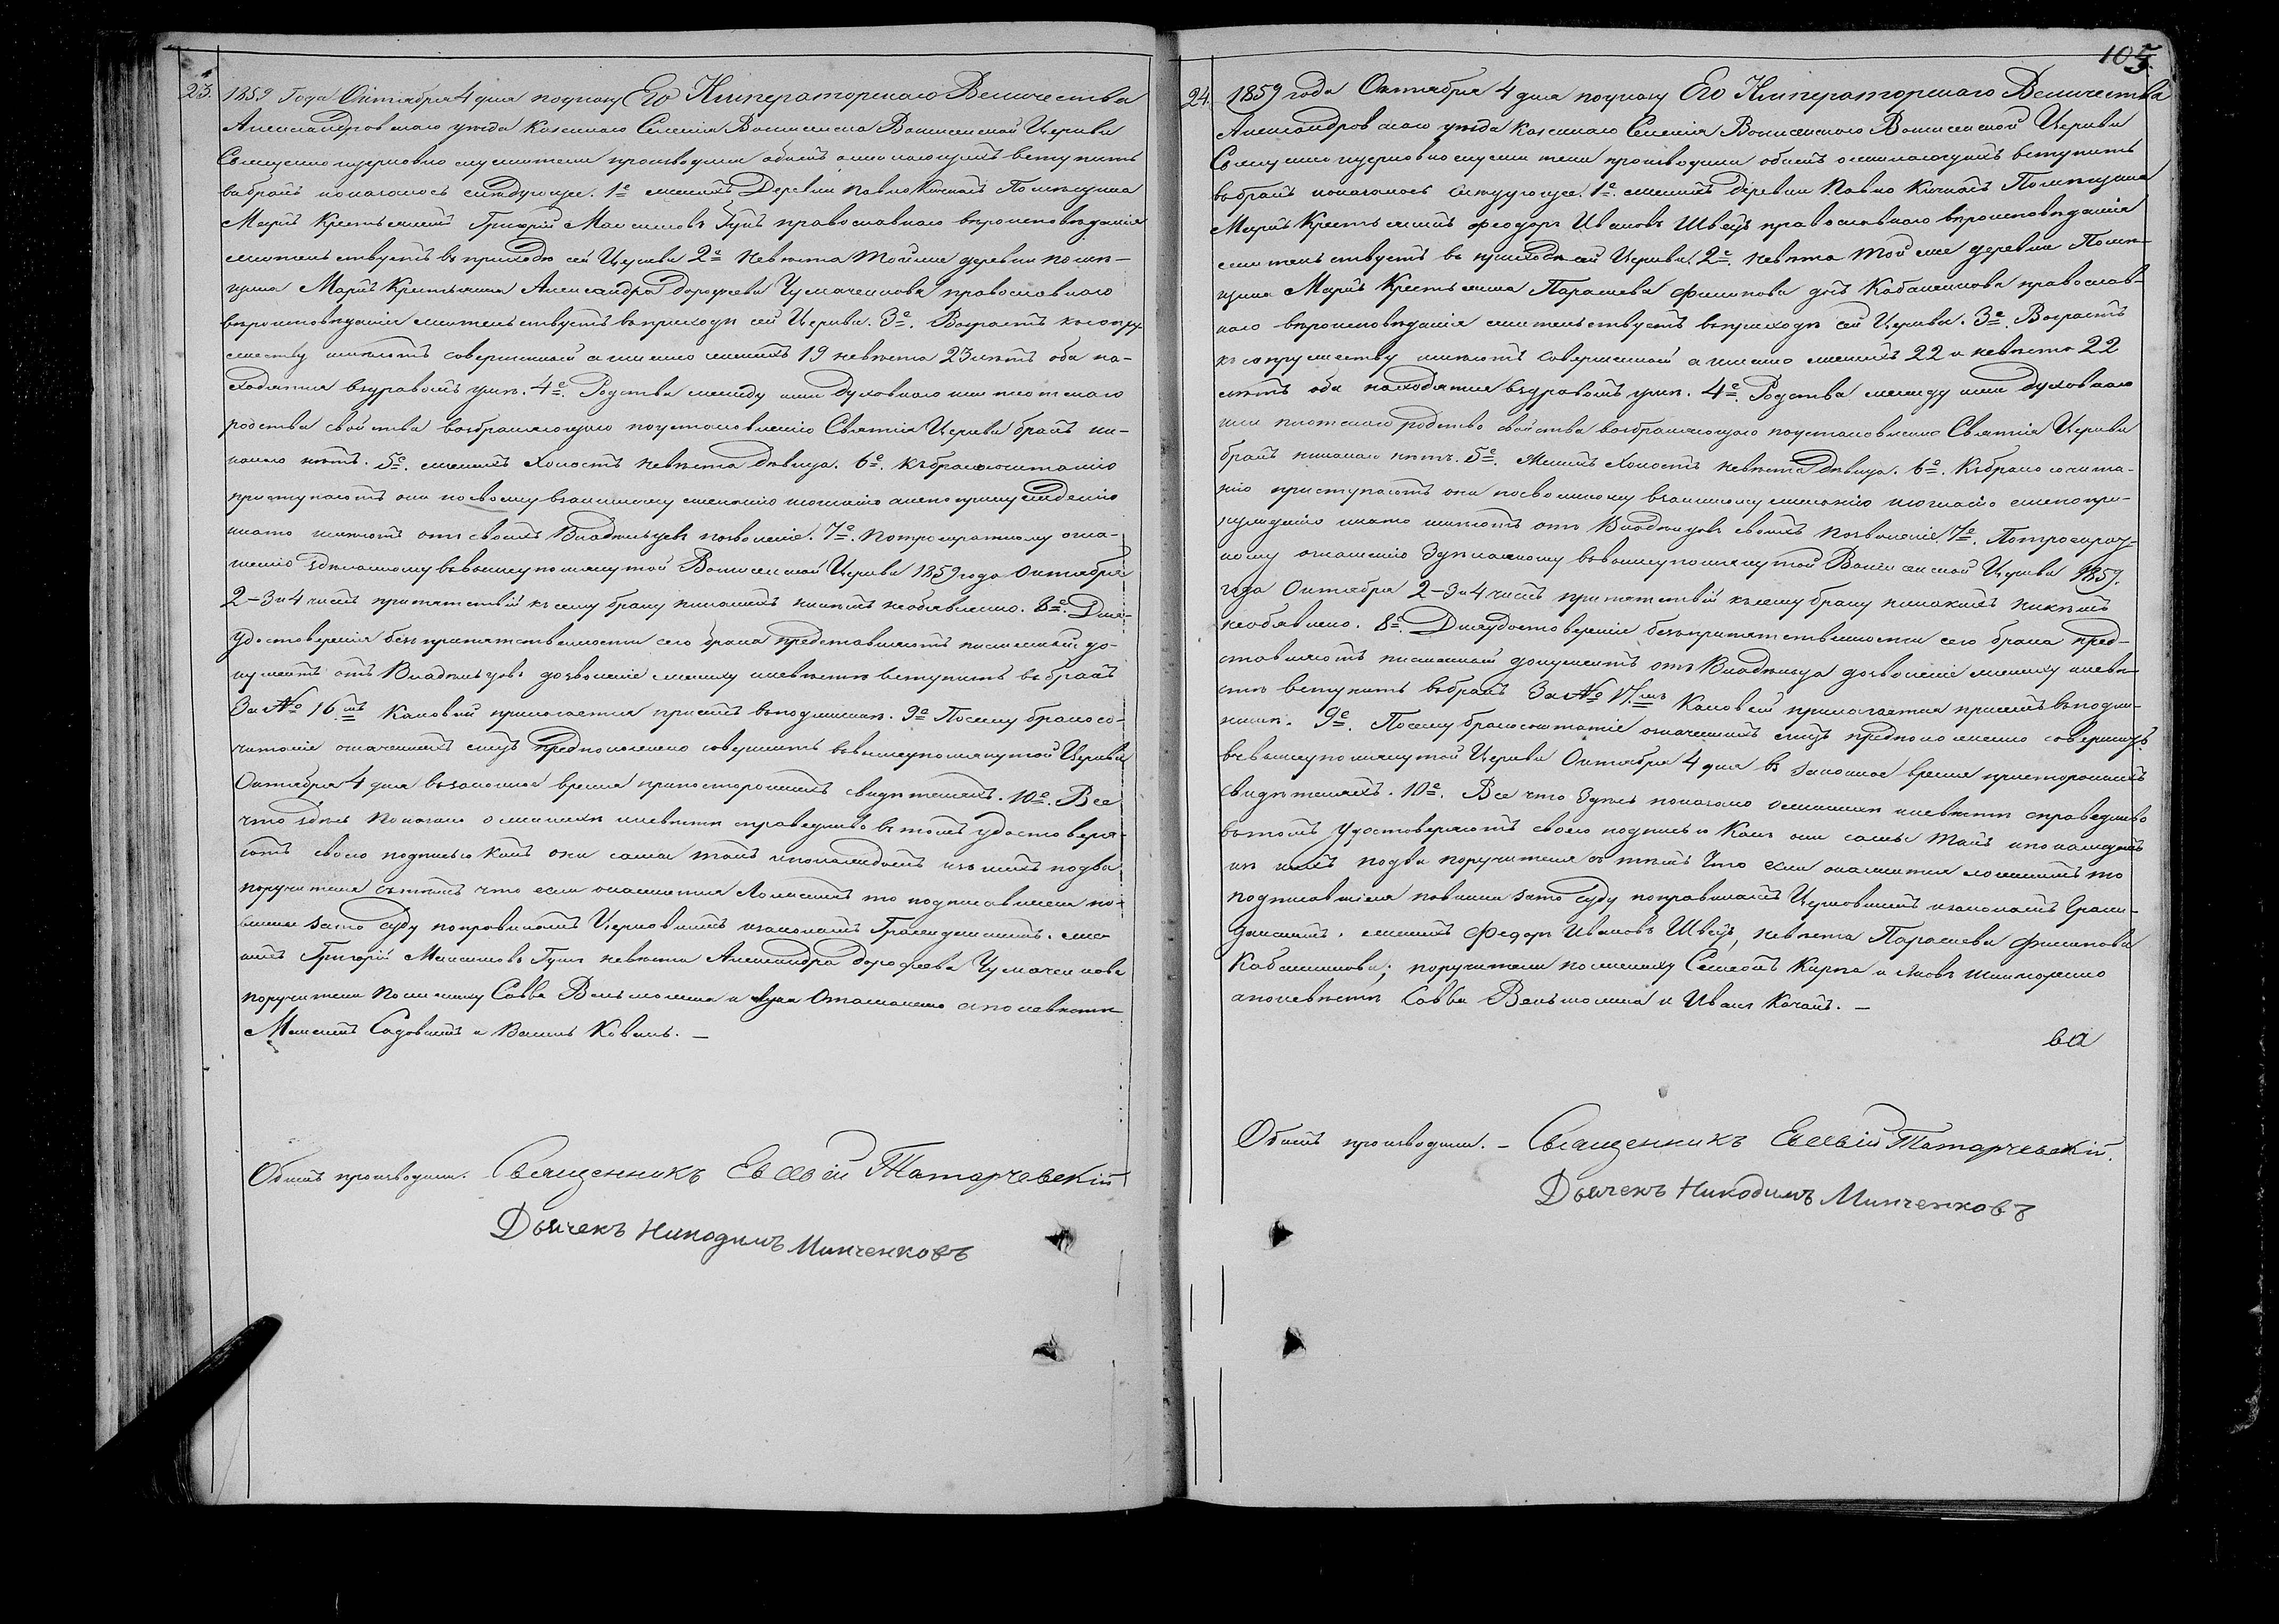 23. 1859 Года Октября 4 дня по указу Его Императорскаго Величества
Александровскаго уѣзда Казеннаго Селенія Вописенска Вописенской Церкви
Священно церковно служители производили обыскъ о желающихъ вступить
въ бракъ и оказалось слѣдующее. 1е женихъ Деревни Павло Кичкасъ Помѣщика
Маркъ Крестьянинъ Григорій Максимовъ Гупъ православнаго вѣроисповѣданія
жительствуетъ въ приходѣ сей Церкви 2е Невѣста той же деревни помѣ-
щика Маркъ Крестьянка Александра Дорофеева Чумаченкова православнаго
вѣроисповѣданія жительствуетъ въ приходѣ сей Церкви. 3е. Возрастъ къ супру-
жеству имѣютъ совершенный а именно женихъ 19 невѣста 23 лѣтъ оба на-
ходятся въ здравомъ умѣ. 4е. Родства между ими духовнаго или плотскаго
родства свойства возбраняющаго по установленію Святыя Церкви бракъ ни-
какого нѣтъ. 5е. женихъ Холостъ невѣста дѣвица. 6е. Къ бракосочитанію
приступаютъ они по своему взаимному желанію и согласію а не по принужденію
и на то имѣютъ отъ своихъ Владѣльцевъ позволеніе. 7е. По троекратному огла-
шенію здѣланному въ вышеупомянутой Вописенской Церкви 1859 года Октября
2-3 и 4 числъ припятствій къ сему браку никакихъ никѣмъ необявлено. 8е. Для
Удостоверенія безпрепятственности сего брака представляютъ писменный до-
кументъ отъ Владѣльцовъ дозволеніе жениху и невѣсте вступить въ бракъ
За № 16мъ Каковый прилагается при семъ въ подлинникѣ. 9е Посему бракосо-
читаніе означенныхъ лицъ предположено совершить въ вышеупомянутой Церкви
Октября 4 дня въ законное время при постороннихъ свидѣтеляхъ. 10е. Все
что здѣсь показано о женихѣ и невѣстѣ справедливо въ томъ удостоверя-
ютъ своею подписью какъ они сами такъ и по каждомъ изъ нихъ по два
поручителя съ тѣмъ что если окажется ложнымъ то подписавшіеся по-
винны за то суду по правиламъ Церковнымъ и законамъ Гражданскимъ. же-
нихъ Григорій Максимовъ Гупъ невѣста Александра Дорофеева Чумаченкова
поручители по жениху Савва Вельможка и Лука Отаманенко а по невѣсте
Максимъ Садовый и Василь Коваль. —
Обыскъ производили. Священникъ Евсевій Татарчевскій
Дьячекъ Никодимъ Минченковъ
105
24. 1859 года Октября 4 дня по указу Его Императорскаго Величества
Александровскаго уѣзда Казеннаго Селенія Вописенскаго Вописенской Церкви
Священно церковно служители производили обыскъ о желающихъ вступить
въ бракъ и оказалось слѣдующее. 1е. женихъ деревни Павло Кичкасъ Помѣщика
Маркъ Крестьянинъ Феодоръ Ивановъ Швецъ православнаго вѣроисповѣданія
жительствуетъ въ приходѣ сей Церкви. 2е. невѣста той же деревни Помѣ-
щика Маркъ Крестьянка Параскева Филипова дочь Кабаненкова православ-
наго вѣроисповѣданія жительствуетъ въ приходѣ сей Церкви. 3е. Возрастъ
къ супружеству имѣютъ совершенный а именно женихъ 22 а невѣста 22
лѣтъ оба находятся въ здравомъ умѣ. 4е. Родства между ими духовнаго
или плотскаго родства свойства возбраняющаго по установленію Святыя Церкви
бракъ никакаго нѣтъ. 5е. Женихъ Холостъ невѣста Дѣвица. 6е. Къ бракосочита-
нію приступаютъ они по своему взаимному желанію и согласію а не по при-
нужденію и на то имѣютъ отъ Владѣльцовъ своихъ позволеніе. 7е. По троекрат-
ному оглашенію Здѣланному въ вышеупомянутой Вописенской Церкви 1859.
года Октября 2-3 и 4 числъ припятствій къ сему браку никакихъ никѣмъ
необявлено. 8е. Для удостовѣреніе безпрепятственности сего брака пред-
ставляютъ писменный документъ отъ Владѣльца дозволеніе жениху и невѣ-
стѣ вступить въ бракъ За № 17.мъ Каковый прилагается при семъ въ подлин-
никѣ. 9е. Посему бракосочитаніе означенныхъ лицъ предположенно совершить
въ вышеупомянутой Церкви Октября 4 дня въ законное время при стороннихъ
свидѣтеляхъ. 10е. Все что Здѣсь показано о женихѣ и невѣстѣ справедливо
въ томъ Удостоверяютъ своею подписью Какъ они самы такъ и по каждомъ
изъ нихъ по два поручителя съ тѣмъ Что если окажется ложнымъ то
подписавшіеся повинны за то Суду по правиламъ Церковнымъ и законамъ Граж-
данскимъ. женихъ Федоръ Ивановъ Швецъ, невѣста Параскева Филипова
Кабаненкова; поручители по жениху Семенъ Карпа и Яковъ
а по невѣстѣ Савва Вельможка и Иванъ Качанъ. —
ва
Обыскъ производили. — Священникъ Евсевій Татарчевскій.
Дьячекъ Никодимъ Минченковъ